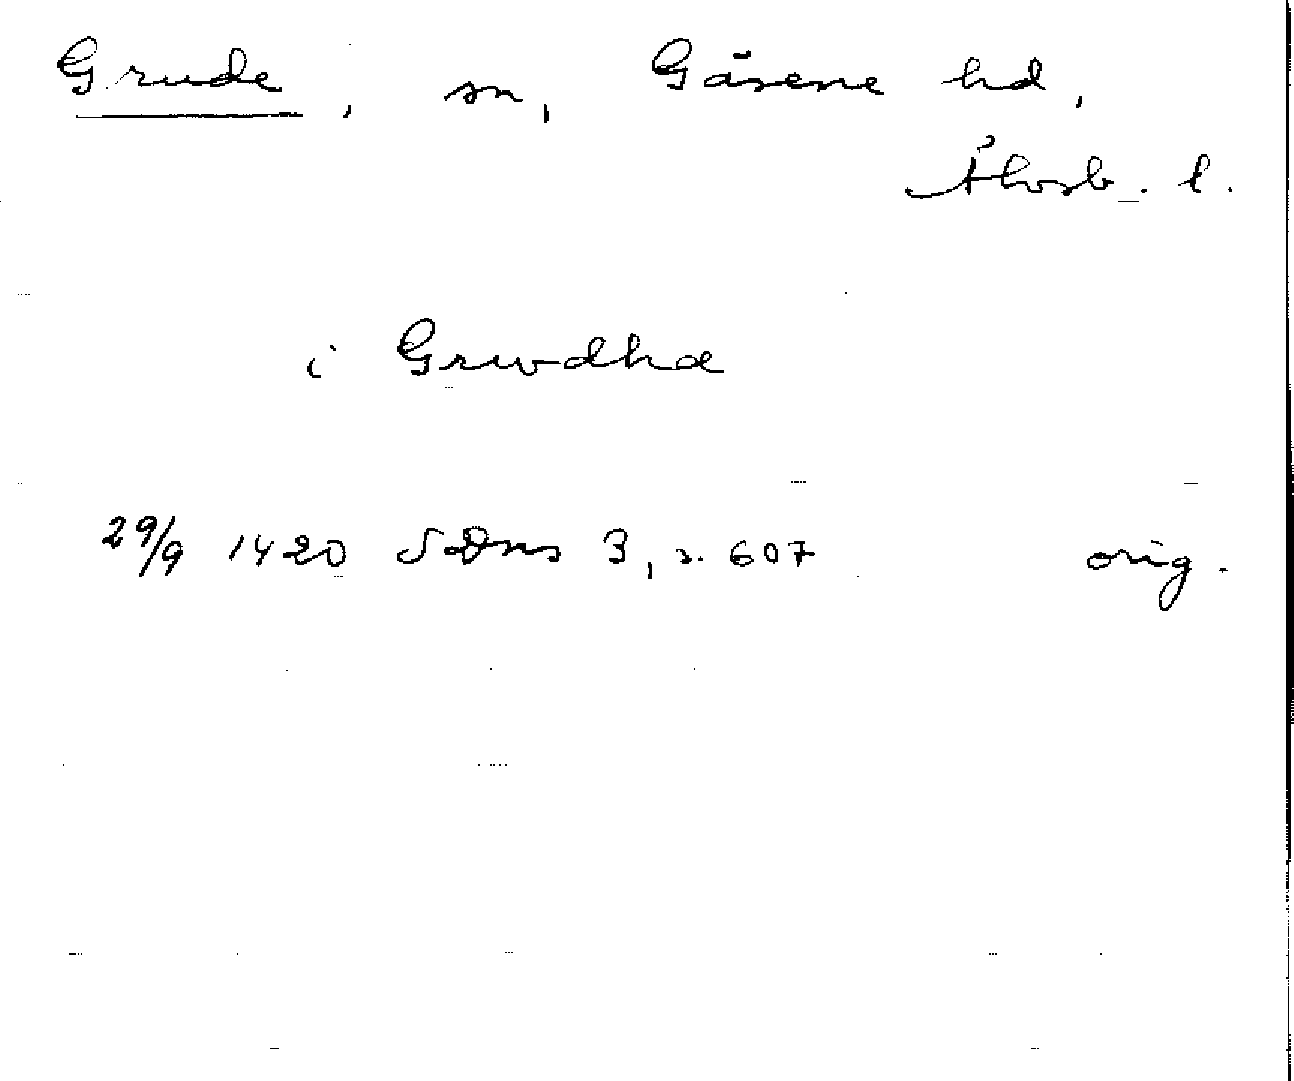 Grude, sn, Gäsene hd,
Älvsb. l.
i Grwdhæ
29/9 1420 SDns 3, s. 607 orig.